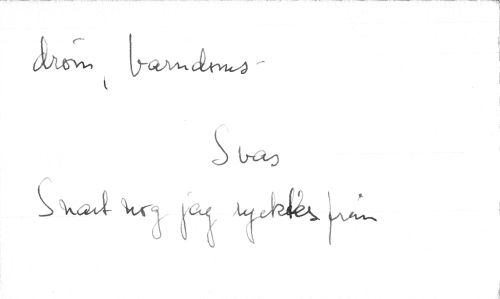 dröm, barndoms-
Svas
Snart nog jag rycktes från